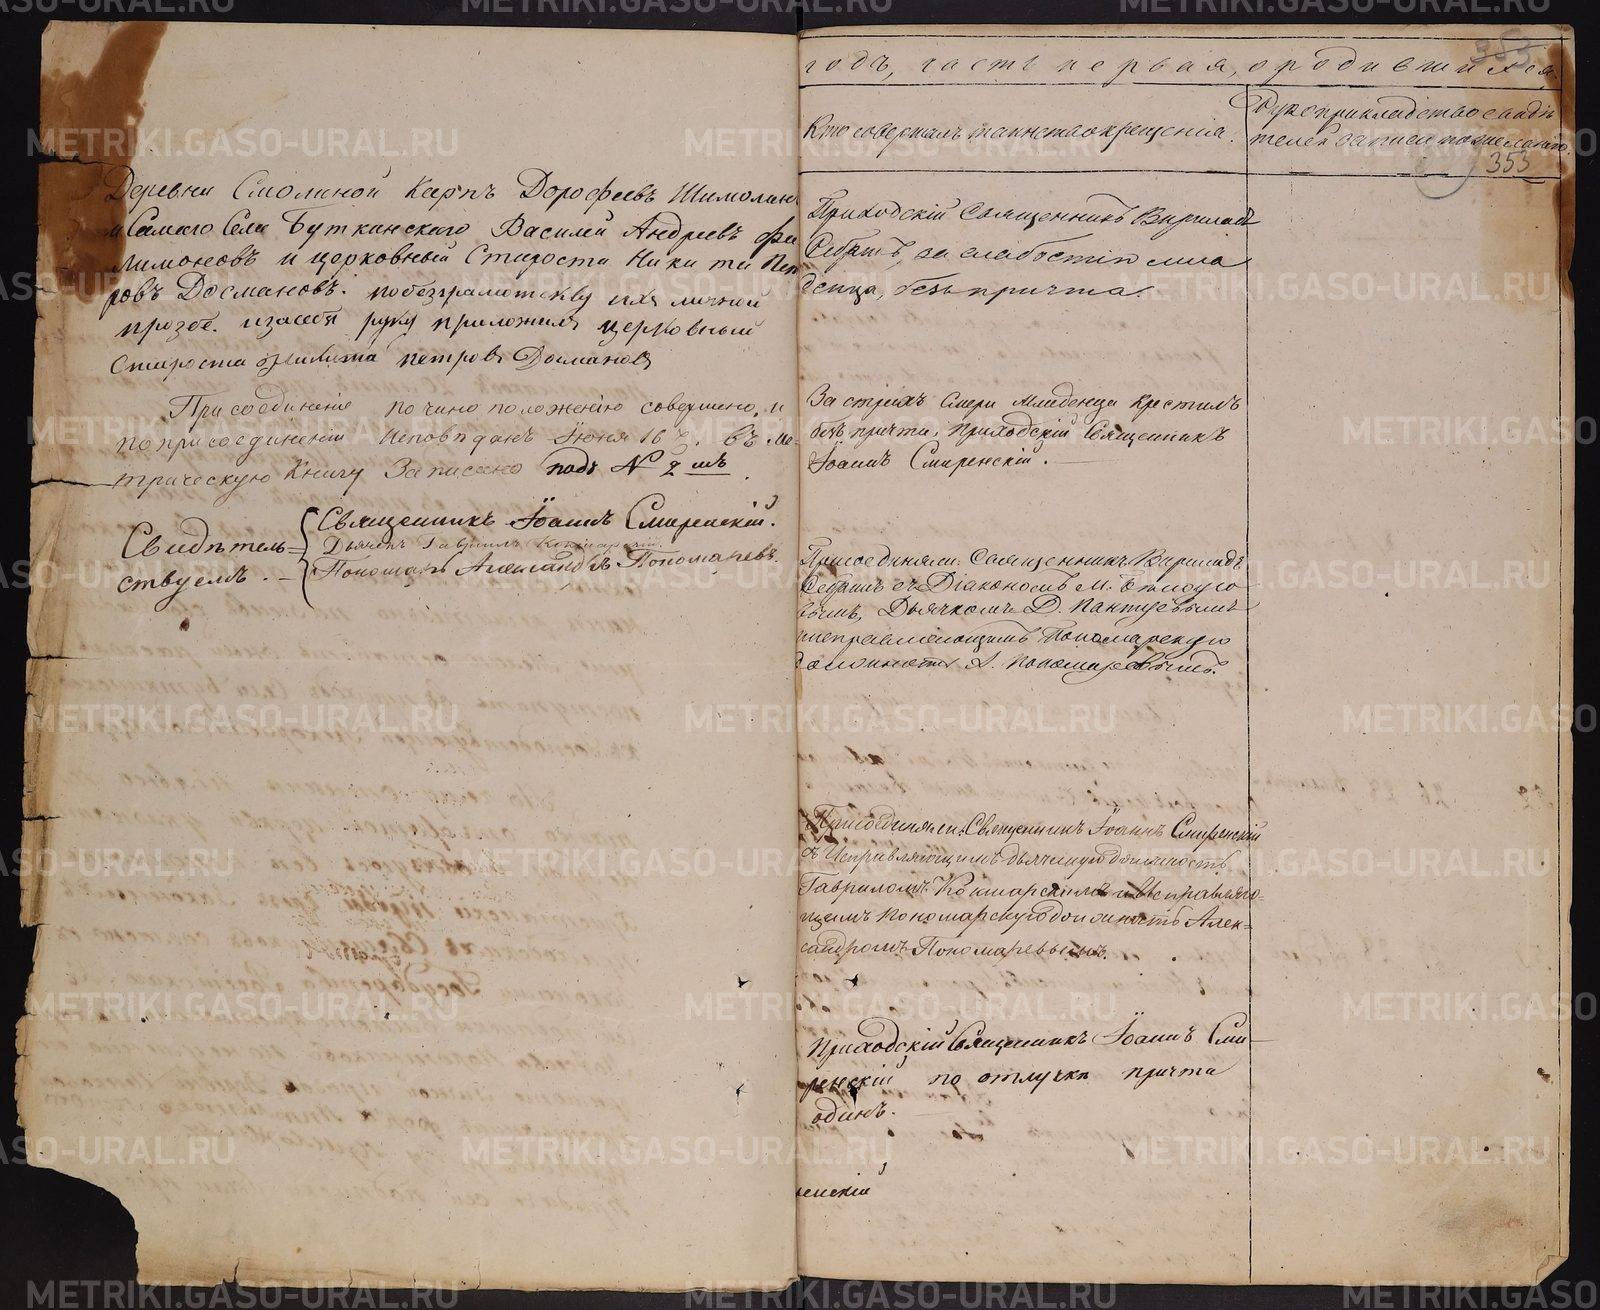 Деревни Смолиной Карпъ Дорофеевъ Шимолин
и Самаго Села Буткинскаго Василей Андреевъ Фи
лимоновъ и церковный Староста Никита Пет
ровъ Досмановъ. по безграмотству ихъ личной
прозбе. и за себя руку приложилъ церковный
Староста Никита петровъ Досмановъ
Присоединение по чино положению совершено, и
по присоединении Исповеданъ Июня 16 ч. въ Ме-
трическую Книгу Записано подъ №
Свидѣтель=
ствуемъ.
Священникъ Іоаннъ Смиренскій.
Дьячекъ Гавриилъ Кокшарскій.
Пономарь Александръ Пономаревъ.
353
годъ, часть первая, о родившихся.
Кто совершалъ таинство крещенія.
Рукоприкладство свидѣ
телей записи по желанію.
353
Приходскій Священникъ
за слабостію мла
денца, безъ причта.
За страхъ Смерти Младенца крестилъ
безъ причта, Приходскій Священникъ
Іоаннъ Смиренскій.
Присоединяли: Священникъ
съ Діакономъ М.
Дьячкомъ Д. Пантуевымъ
и исправляющимъ Пономарскую
должность А. Пономаревымъ.
Присоединяли: Священникъ Іоаннъ Смиренскій
съ Исправляющимъ дьяческую должность
Гавриломъ Кокшарскимъ и Исправляю-
щимъ пономарскую должность Алек=
сандромъ Пономаревымъ.
Приходскій Священникъ Іоаннъ Сми-
ренскій по отлучке причта
одинъ.
енскій
METRIKI.GASO-URAL.RU